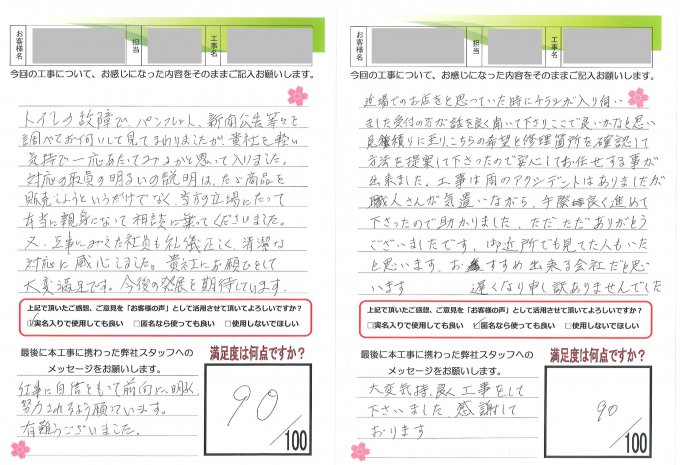 お客様名
担当
工事名
今回の工事について、お感じになった内容をそのままご記入お願いします。
トイレの故障でパンフレット、新聞広告等々を
調べてお伺いして見てまわりましたが貴社を軽い
気持で一応あたってみるかと思って入りました。
対応の社員の明るいの説明は、ただ商品を
販売しようというだけでなく 当方の立場にたって
本当に親身になって相談に乗ってくださいました。
又、工事にみえた社員も礼儀正しく、清潔な
対応に感心しました。貴社にお願いをして
大変満足です。今後の発展を期待しています。
上記で頂いたご感想、ご意見を「お客様の声」として活用させて頂いてよろしいですか?
☑実名入りで使用しても良い □匿名なら使っても良い □使用しないでほしい
最後に本工事に携わった弊社スタッフへの
メッセージをお願いします。
仕事に自信をもって前向に、明るく
努力されるよう願っています。
有難うございました。
満足度は何点ですか?
90
/100
お客様名
担当
工事名
今回の工事について、お感じになった内容をそのままご記入お願いします。
近場でのお店をと思っていた時にチラシが入り伺い
ました受付の方が話を良く聞いて下さりここで良いかなと思い
見積積りに至りこちらの希望と修理箇所を確認して
方法を提案して下さったので安心してお任せする事が
出来ました。工事は雨のアクシデントはありましたが
職人さんが気遣いながら、手際良く進めて
下さったので助かりました、ただただありがとう
ございましたです、御近所でも見てた人もいた
と思います、おすすめ出来る会社だと思
います 遅くなり申し訳ありませんでした
上記で頂いたご感想、ご意見を「お客様の声」として活用させて頂いてよろしいですか?
□実名入りで使用しても良い ☑匿名なら使っても良い □使用しないでほしい
最後に本工事に携わった弊社スタッフへの
メッセージをお願いします。
大変気持良く工事をして
下さいました 感謝して
おります
満足度は何点ですか?
90
/100